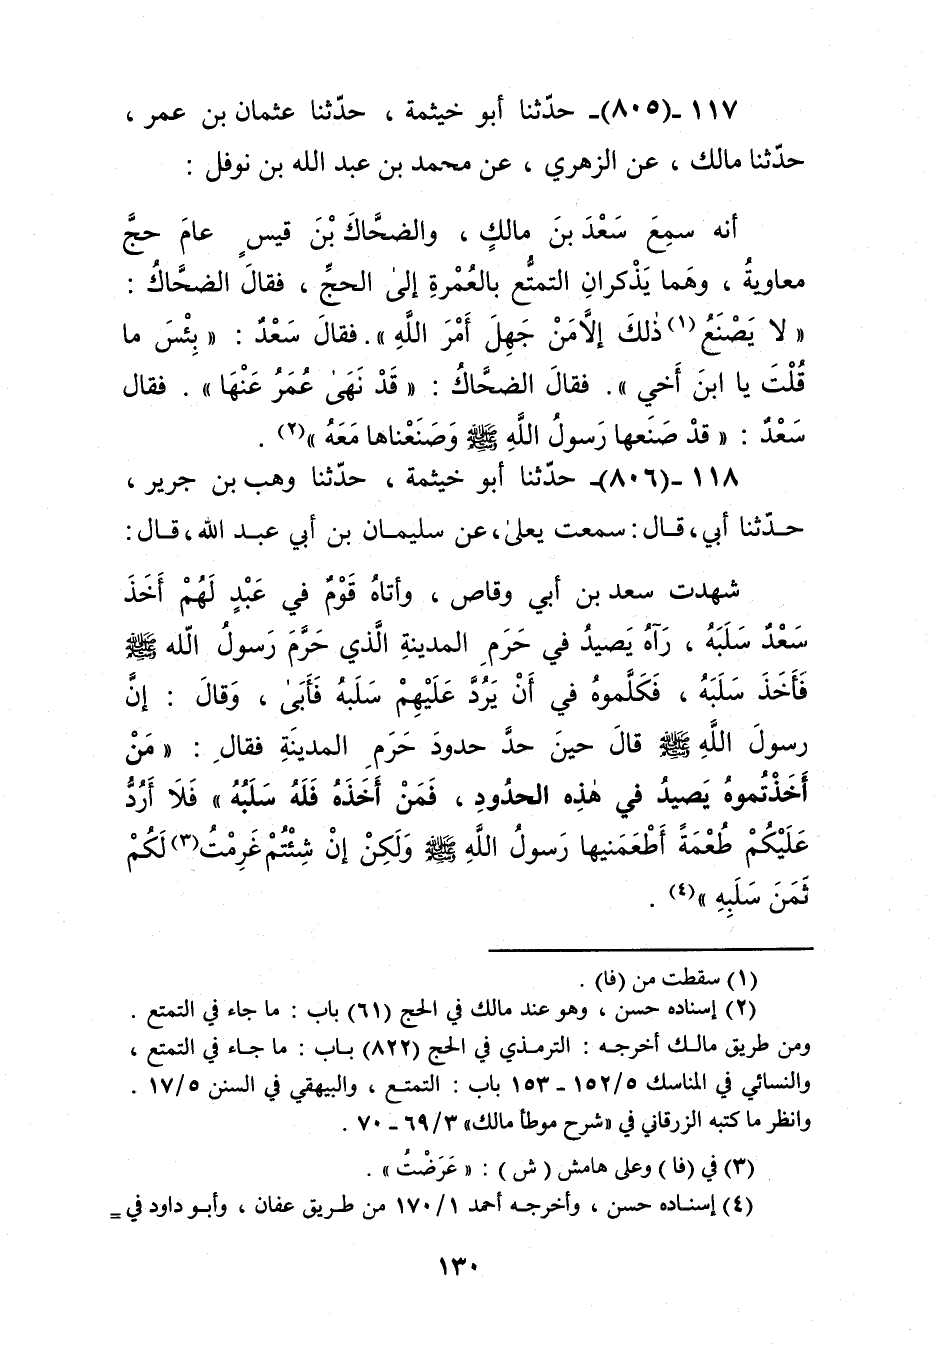 ١١٧ ـ(٨٠٥)ـ حدّثنا أبو خيثمة ، حدّثنا عثمان بن عمر ،
حدّثنا مالك ، عن الزهري ، عن محمد بن عبد الله بن نوفل :
أنه سمِعَ سَعْدَ بنَ مالكٍ ، والضحَّاكَ بْنَ قيسٍ عامَ حجَّ
معاويةُ ، وهَما يَذْكرانِ التمتُّع بالعُمْرةِ إلىٰ الحجِّ ، فقالَ الضحَّاكُ :
« لا يَصْنَعُ(١) ذٰلكَ إلاَّمَنْ جَهِلَ أَمْرَ اللَّهِ ». فقالَ سَعْدٌ : « بِئْسَ ما
قُلْتَ يا ابنَ أَخي ». فقالَ الضحَّاكُ : « قَدْ نَهَىٰ عُمَرُ عَنْهَا » . فقال
سَعْدٌ : « قدْ صَنَعها رَسولُ اللَّهِ ﷺ وَصَنَعْناها مَعَهُ »(٢) .
١١٨ ـ(٨٠٦)ـ حدّثنا أبو خيثمة ، حدّثنا وهب بن جرير ،
حـدّثنا أبي، قـال: سمعت يعلىٰ، عن سليمـان بن أبي عبـد الله، قـال:
شهدت سعد بن أبي وقاص ، وأتاهُ قَوْمٌ في عَبْدٍ لَهُمْ أَخَذَ
سَعْدٌ سَلَبَهُ ، رَآهُ يَصيدُ في حَرَمِ المدينةِ الَّذي حَرَّمَ رَسولُ الّله ﷺ
فَأَخَذَ سَلَبَهُ ، فَكَلَّموهُ في أَنْ يَرُدَّ عَلَيْهِمْ سَلَبهُ فَأَبَىٰ ، وَقالَ : إنَّ
رسولَ اللَّهِ ﷺ قالَ حينَ حدَّ حدودَ حَرَمِ المدينَةِ فقالِ : « مَنْ
أَخَذْتُموهُ يَصيدُ في هٰذِه الحدُودِ ، فَمَنْ أَخَذَهُ فَلَهُ سَلَبُهُ » فَلَا أَرُدُّ
عَلَيْكُمْ طُعْمَةً أَطْعَمَنيها رَسولُ اللَّهِ ﷺ وَلَكِنْ إنْ شِئْتُمْ غَرِمْتُ(٣) لَكُمْ
ثَمَنَ سَلَبِهِ »(٤) .
(١) سقطت من (فا) .
(٢) إسناده حسن ، وهو عند مالك في الحج (٦١) باب : ما جاء في التمتع .
ومن طريق مالـك أخرجـه : الترمـذي في الحج (٨٢٢) بـاب : ما جـاء في التمتع ،
والنسائي في المناسك ١٥٢/٥ ـ ١٥٣ باب : التمتـع ، والبيهقي في السنن ١٧/٥ .
وانظر ما كتبه الزرقاني في «شرح موطأ مالك» ٦٩/٣ ـ ٧٠ .
(٣) في (فا) وعلى هامش ( ش ) : « عَرَضْتُ » .
(٤) إسنـاده حسن ، وأخرجـه أحمد ١٧٠/١ من طـريق عفان ، وأبـو داود في =
١٣٠